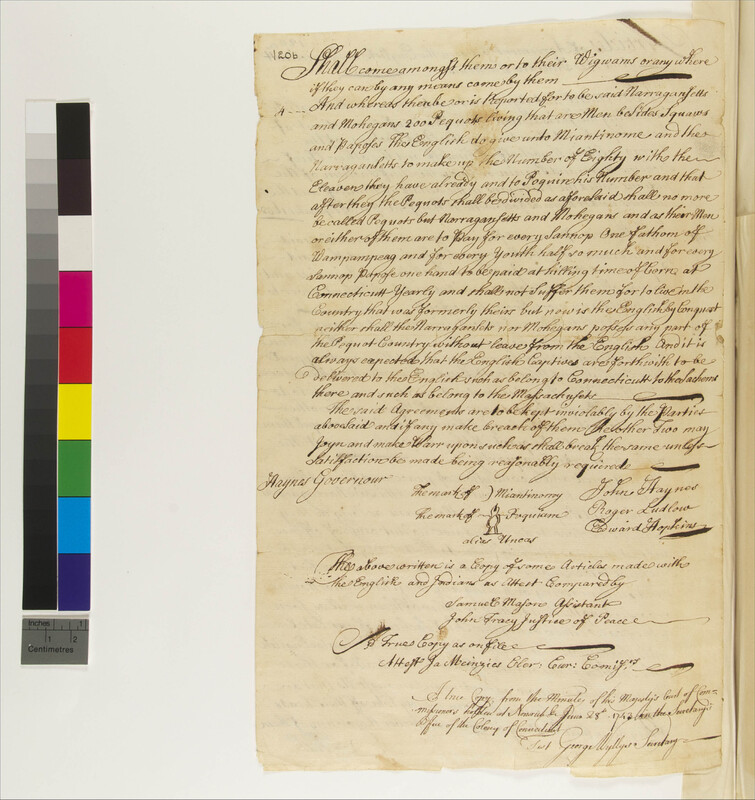 120b
Shall come amongst them or to their Wigwams or any where
if they can by any means come by them
4
And whereas there be or is Reported for to be said Narragansetts
and Mohegans 200 Pequots living that are Men besides Squaws
and Paposes The English do give unto Miantinome and the
Narragansetts to make up the Number of Eighty with the
Eleaven they have already and to Poquim his Number and that
after they the Pequots shall be divided as aforesaid shall no more
be called Pequots but Narragansetts and Mohegans and as their Men
or either of them are to Pay for every Sannop One fathom of
Wampampeag and for every Youth half so much and for every
Sannop Papose one hand to be paid at killing time of Corn at
Connecticutt Yearly and shall not Suffer them for to live in the
Country that was formerly theirs but now is the English by Conquest
neither shall the Narragansets nor Mohegans possess any part of
the Pequot Country without leave from the English And it is
always expected that the English Captives are forthwith to be
delivered to the English such as belong to Connecticutt to the Sachems
there and such as belong to the Massachusets
The said Agreements are to be kept inviolably by the Parties
abovesaid and if any make breach of them the other Two may
Joyn and make Warr upon such as shall break the same unless
Satisfaction be made being reasonably required
Haynes Governour
The mark of ) Miantinomy John Haynes
The mark of Poquium Roger Ludlow
alies Uncas Edward Hopkins
The above written is a Copy of some Articles made with
the English and Indians as Attest Compared by
Samuel Mason Assistant
John Tracy Justice of Peace
A True Copy as on file
Attest Ja Meinzies Cler Cur: Comiss:rs
A true Copy, from the Minutes of his Majestys Court of Com-
missioners holden at Norwich &c June 28th 1742 in the Secretarys
Office of the Colony of Connecticut
Test George Wyllys Secretary
Inches 1
1 2
Centimetres